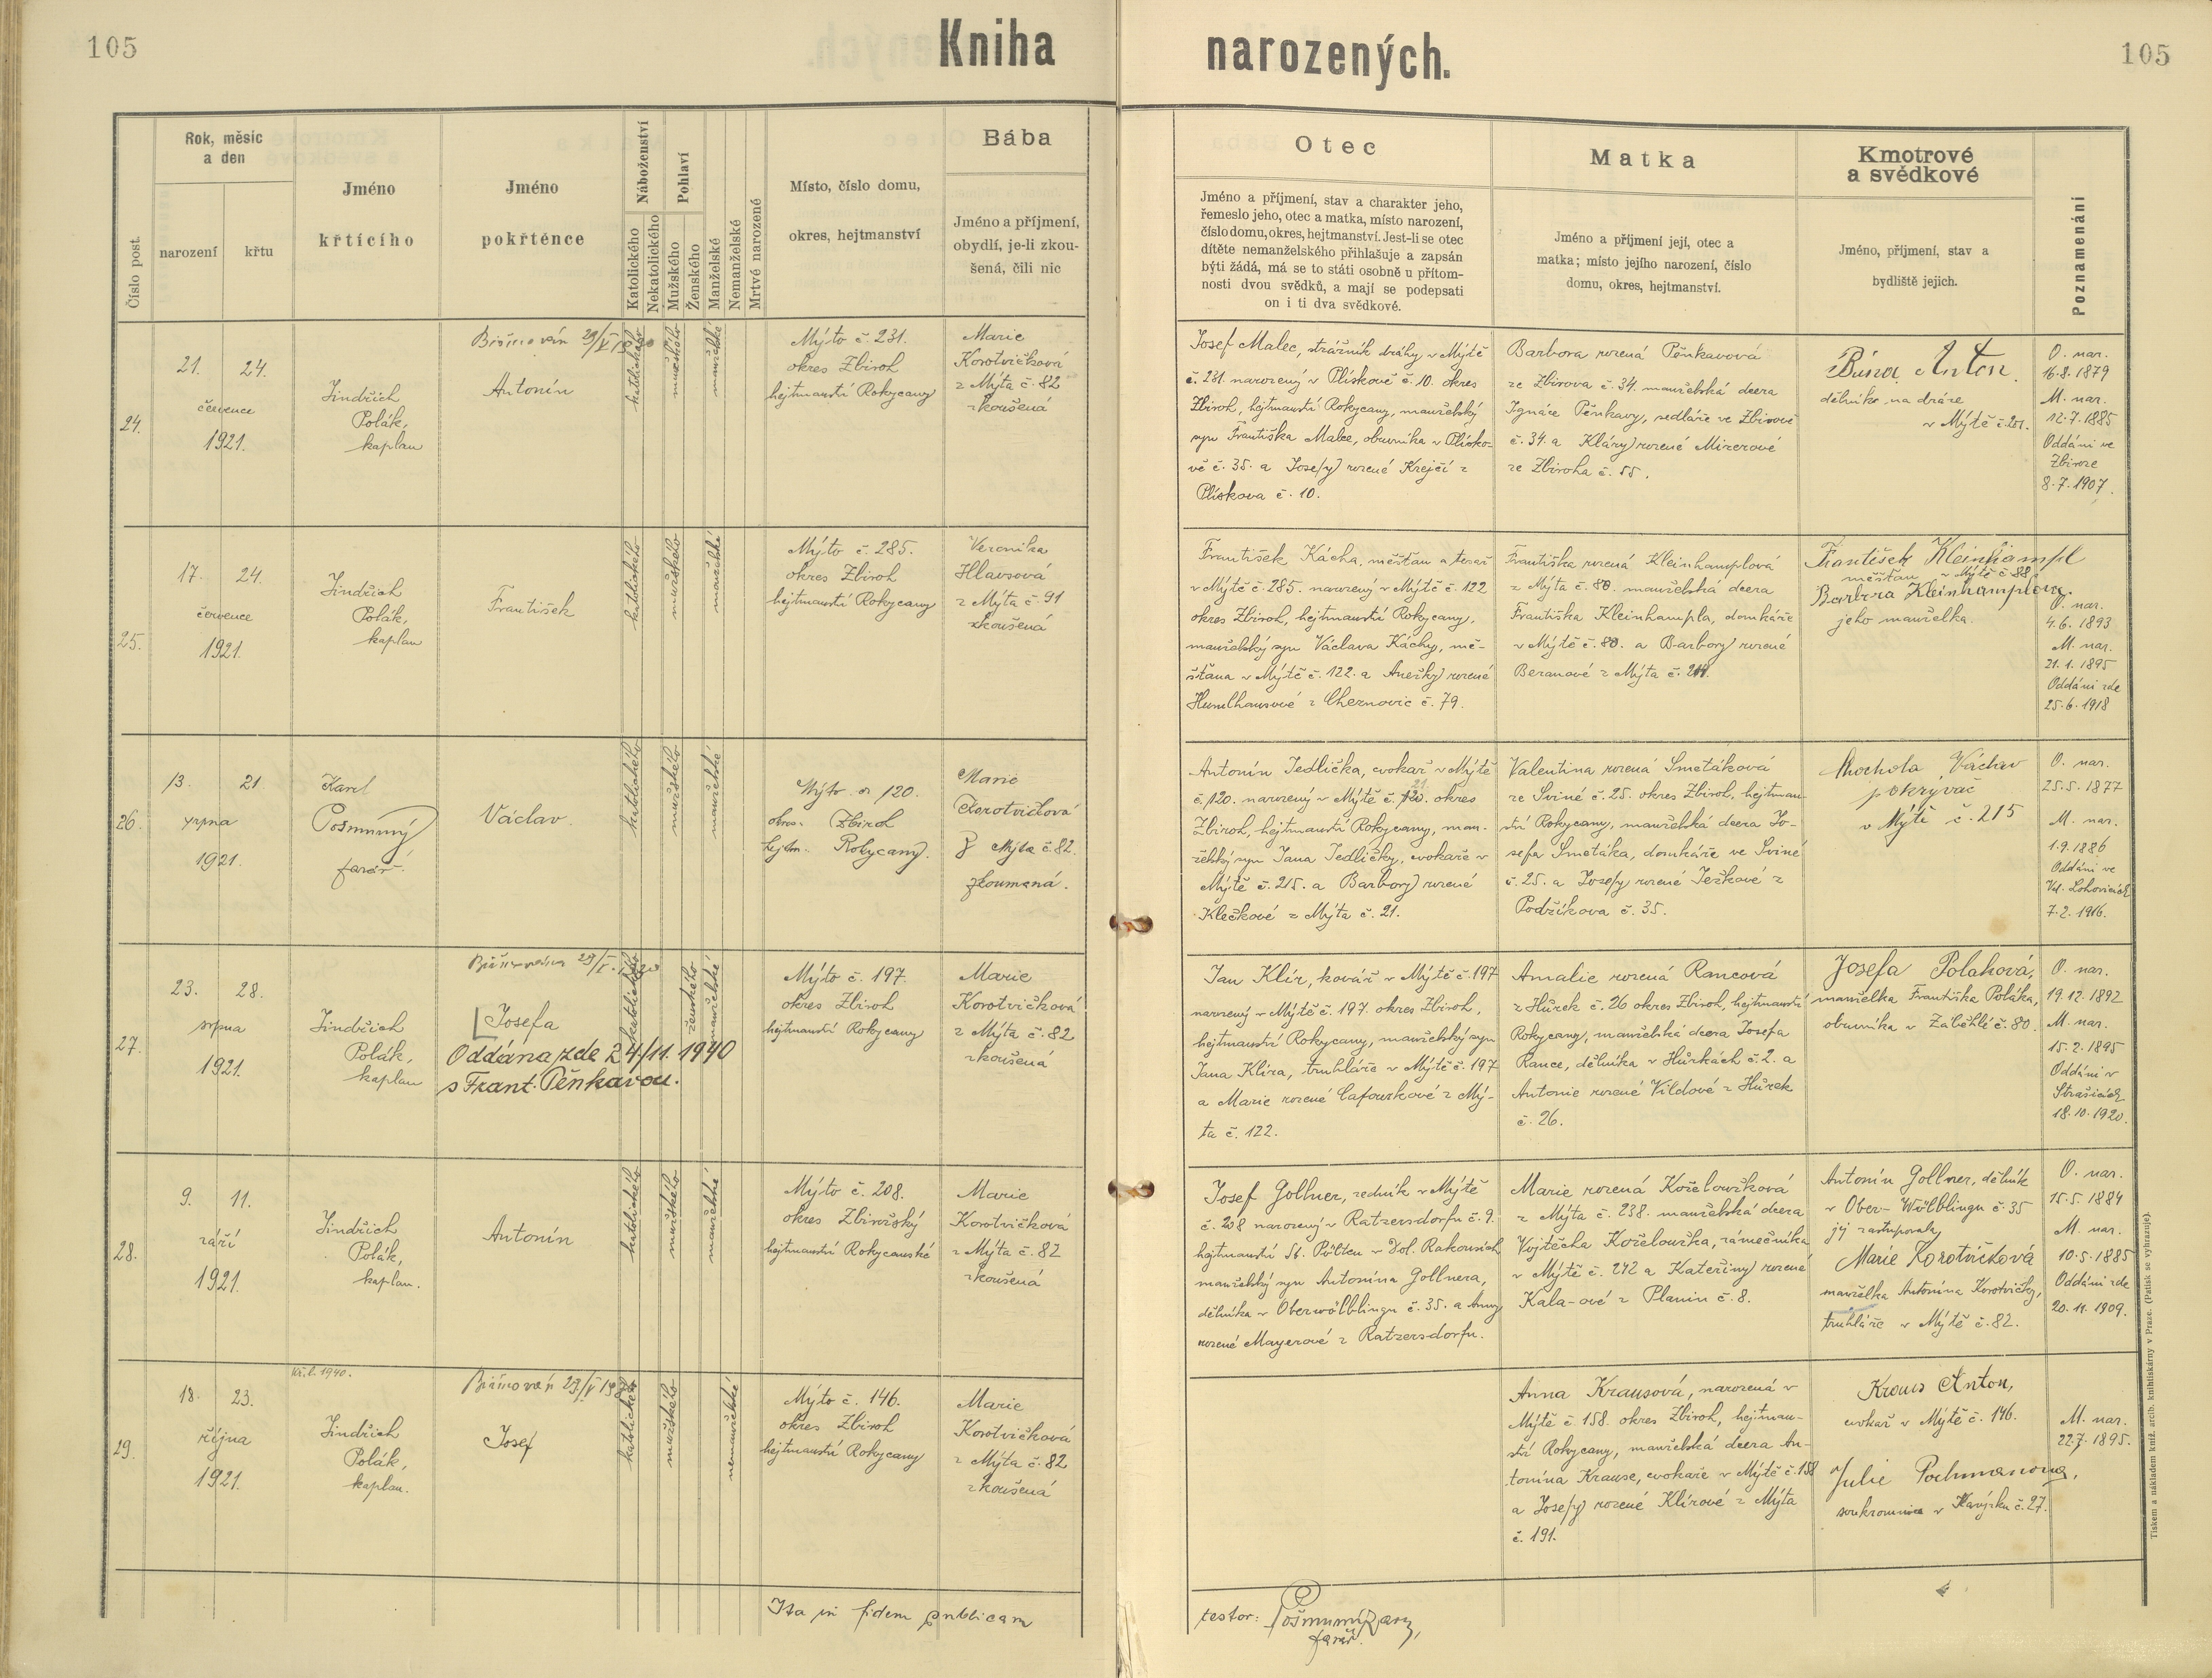 105
Kniha
narozených.
105
Číslo post.
Rok, měsíc
a den
narození
křtu
Jméno
křtícího
Jméno
pokřtěnce
Náboženství
Katolického
Nekatolického
Pohlaví
Mužského
Ženského
Manželské
Nemanželské
Mrtvé narozené
Místo, číslo domu,
okres, hejtmanství
Bába
Jméno a příjmení,
obydlí, je-li zkou-
šená, čili nic
Otec
Jméno a příjmení, stav a charakter jeho,
řemeslo jeho, otec a matka, místo narození,
číslo domu, okres, hejtmanství. Jest-li se otec
dítěte nemanželského přihlašuje a zapsán
býti žádá, má se to státi osobně u přítom-
nosti dvou svědků, a mají se podepsati
on i ti dva svědkové.
Matka
Jméno a příjmení její, otec a
matka; místo jejího narození, číslo
domu, okres, hejtmanství.
Kmotrové
a svědkové
Jméno, příjmení, stav a
bydliště jejich.
Poznamenání
24.
21. 24.
července
1921.
Jindřich
Polák,
kaplan
Biřmován 29/V
Antonín
katolického
mužského
manželské
Mýto č. 231.
okres Zbiroh
hejtmanství Rokycany
Marie
Korotvičková
z Mýta č. 82
zkoušená
Josef Malec, strážník dráhy v Mýtě
č. 231. narozený v Plískově č. 10. okres
Zbiroh, hejtmanství Rokycany, manželský
syn Františka Malce, obuvníka v Plísko-
vě č. 35. a Josefy rozené Krejčí z
Plískova č. 10.
Barbora rozená Pěnkavová
ze Zbirova č. 34. manželská dcera
Ignáce Pěnkavy, sedláře ve Zbirově
č. 34. a Kláry rozené
ze Zbiroha č. 55.
Bína Anton.
dělník na dráze
v Mýtě č. 201.
O. nar.
16.8.1879
M. nar.
12.7.1885
Oddáni ve
Zbiroze
8.7.1907.
25.
17. 24.
července
1921.
Jindřich
Polák,
kaplan
František
katolického
mužského
manželské
Mýto č. 285.
okres Zbiroh
hejtmanství Rokycany
Veronika
Hlavsová
z Mýta č. 91
zkoušená
František Kácha, měšťan a tesař
v Mýtě č. 285. narozený v Mýtě č. 122
okres Zbiroh, hejtmanství Rokycany,
manželský syn Václava Káchy, mě-
šťana v Mýtě č. 122. a Anežky rozené
Humlhansové z Cheznovic č. 79.
Františka rozená Kleinhamplová
z Mýta č. 88. manželská dcera
Františka Kleinhampla, domkáře
v Mýtě č. 88. a Barbory rozené
Beranové z Mýta č.
František Kleinhampl
měšťan v Mýtě č. 88
Barbora Kleinhamplová.
jeho manželka.
O. nar.
4.6.1893
M. nar.
21.1.1895
Oddáni zde
25.6.1918
26.
13. 21.
srpna
1921.
Karel
Pošmurný
farář.
Václav.
katolického
mužského
manželské
Mýto č. 120.
okres. Zbiroh
hejtm. Rokycany.
Marie
Korotvičková
z Mýta č. 82.
zkoumaná.
Antonín Jedlička, cvokař v Mýtě
č. 120. narozený v Mýtě č. okres
Zbiroh, hejtmanství Rokycany, man-
želský syn Jana Jedličky, cvokaře v
Mýtě č. 215. a Barbory rozené
Klečkové z Mýta č. 21.
Valentina rozená Smetáková
ze Sviné č. 25. okres Zbiroh, hejtman-
ství Rokycany, manželská dcera Jo-
sefa Smetáka, domkáře ve Sviné
č. 25. a Josefy rozené Ježkové z
Podzíkova č. 35.
Chochola Václav
pokrývač
v Mýtě č. 215
O. nar.
25.5.1877
M. nar.
1.9.1886
Oddáni ve
Vel. Lohovicích
7.2.1916.
27.
23. 28.
srpna
1921.
Jindřich
Polák,
kaplan
Biřmována 29/V.
Josefa
Oddána zde 24/11. 1940
s Frant. Pěnkavou.
katolického
ženského
manželské
Mýto č. 197.
okres Zbiroh
hejtmanství Rokycany
Marie
Korotvičková
z Mýta č. 82
zkoušená
Jan Klír, kovář v Mýtě č. 197
narozený v Mýtě č. 197. okres Zbiroh,
hejtmanství Rokycany, manželský syn
Jana Klíra, truhláře v Mýtě č. 197
a Marie rozené Cafourkové z Mý-
ta č. 122.
Amalie rozená Rancová
z Hůrek č. 26 okres Zbiroh, hejtmanství
Rokycany, manželská dcera Josefa
Rance, dělníka v Hůrkách č. 2. a
Antonie rozené Vildové z Hůrek
č. 26.
Josefa Polaková,
manželka Františka Poláka,
obuvníka v Záběhlé č. 80.
O. nar.
19.12.1892
M. nar.
15.2.1895
Oddáni v
Strašicích
18.10.1920.
28.
9. 11.
září
1921.
Jindřich
Polák,
kaplan.
Antonín
katolického
mužského
manželské
Mýto č. 208.
okres Zbirožský
hejtmanství Rokycanské
Marie
Korotvičková
z Mýta č. 82
zkoušená
Josef Gollner, zedník v Mýtě
č. 208 narozený v Ratzersdorfu č. 9.
hejtmanství St. Pölten v Dol. Rakousích
manželský syn Antonína Gollnera,
dělníka v Oberwölblingu č. 35. a Anny
rozené Mayerové z Ratzersdorfu.
Marie rozená Koželoužková
z Mýta č. 238. manželská dcera
Vojtěcha Koželoužka, zámečníka
v Mýtě č. 242 a Kateřiny rozené
Kala-ové z Planin č. 8.
Antonín Gollner, dělník
v Ober-Wölblingu č. 35
jej zastupovala
Marie Korotvičková
manželka Antonína Korotvičky,
truhláře v Mýtě č. 82.
O. nar.
15.5.1884
M. nar.
10.5.1885
Oddáni zde
20.11.1909.
29.
18. 23.
října
1921.
Kř. l. 1940.
Jindřich
Polák,
kaplan.
Biřmován 29/V
Josef
katolického
mužského
nemanželské
Mýto č. 146.
okres Zbiroh
hejtmanství Rokycany
Marie
Korotvičková
z Mýta č. 82
zkoušená
Anna Krausová, narozená v
Mýtě č. 158. okres Zbiroh, hejtman-
ství Rokycany, manželská dcera An-
tonína Krause, cvokaře v Mýtě č. 158
a Josefy rozené Klírové z Mýta
č. 191.
Kraus Anton,
cvokař v Mýtě č. 146.
Julie Pochmanova,
soukromnice v č. 27.
M. nar.
22.7.1895.
Ita in fidem publicam
testor:
farář.
Tiskem a nákladem kníž. arcib. knihtiskárny v Praze. (Patisk se vyhrazuje).